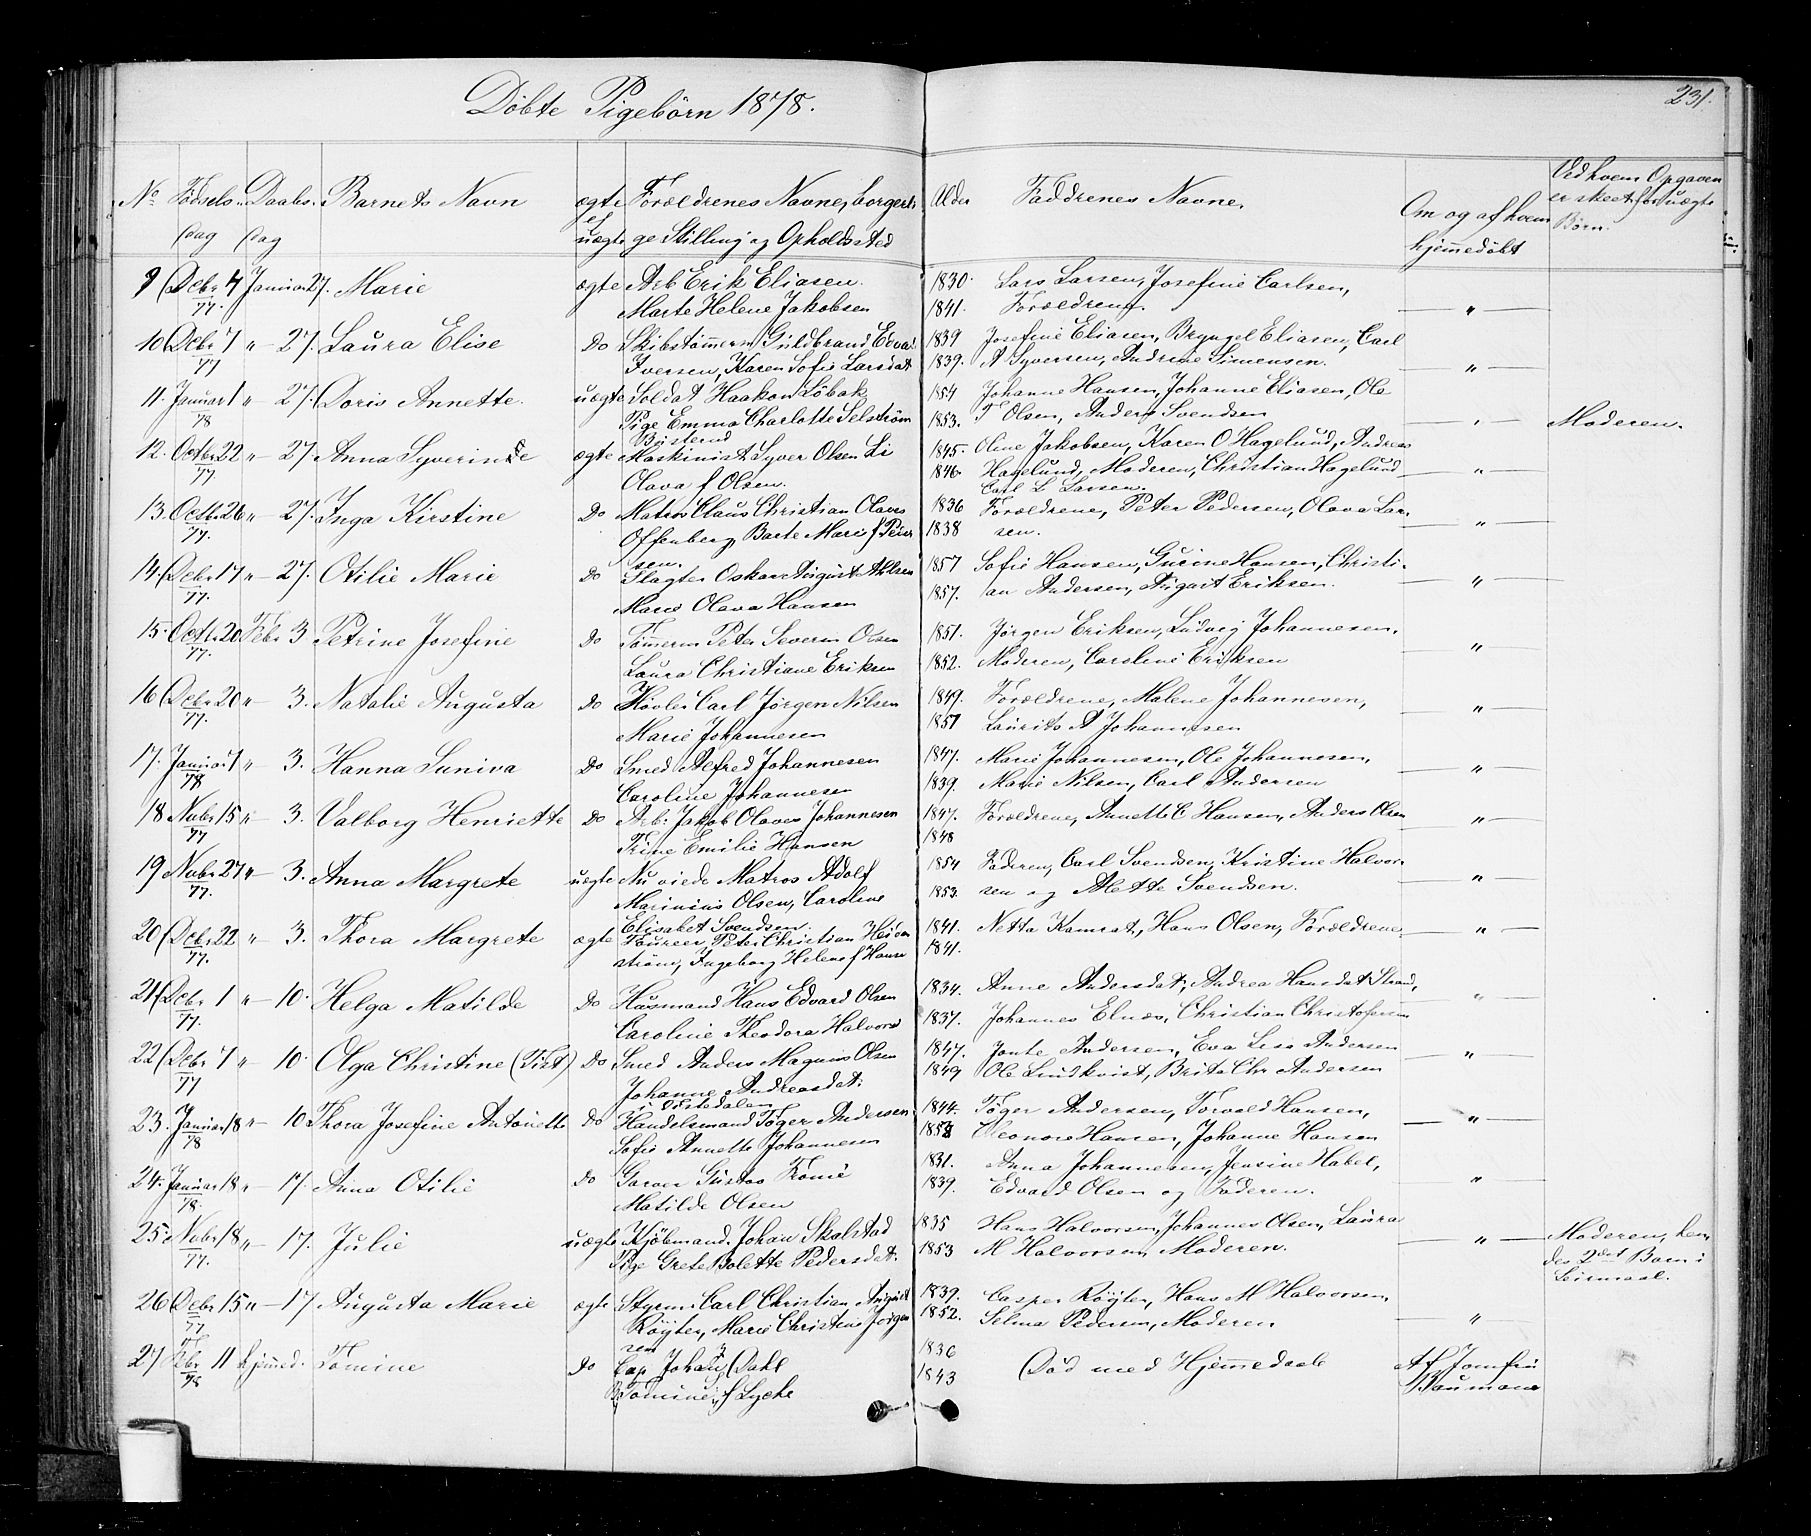 Döbte Pigebörn 1878.
231.
No Födsels dag Daabs dag Barnets Navn ægte el uægte Forældrenes Navne, borgerli ge Stilling og Opholdssted Alder Faddrenes Navne. Om og af hvem hjemmedöbt Ved hvem Opgaven er skeet for uægte Börn.
9 Debr 4 Januar 27. Marie ægte Arb Erik Eliasen. 1830. Lars Larsen, Josefine Carlsen,
77. Marte Helene Jakobsen 1841. Forældrene. "
10 Debr 7 " 27. Laura Elise Do Skibstömmerm Guldbrand Edvard 1839 Josefine Eliasen, Bryngel Eliasen, Carl
77 Iversen, Karen Sofie Larsdat 1839. A Syversen, Andrine Simensen. "
11. Januar 1 " 27. Doris Annette. uægte Soldat Haakon Löbak 1854 Johanne Hansen, Johanne Eliasen, Ole
78 Pige Emma Charlotte Selström 1853. T Olsen, Anders Svendsen " Moderen.
12. Octbr 22 " 27. Anna Syverinde ægte Maskinist Syver Olsen Li 1845. Oline Jakobsen, Karen O Hagelund, Andreas
77. Olava f Olsen. 1846. Hagelund, Moderen, Christian Hagelund "
Carl L Larsen.
13. Octbr 26 " 27. Inga Kirstine Do Matros Claus Christian Olaves 1836 Forældrene, Peter Pedersen, Olava Lar-
77. Offenberg, Barte Marie f Peder 1838 sen. "
sen.
14. Debr 17 " 27. Otilie Marie Do Slagter Oskar August Ahlsen 1857 Sofie Hansen, Gurine Hansen, Christi-
77. Marie Olava Hansen 1857. an Andersen, August Eriksen. "
15. Octbr 20 Febr 3 Petrine Josefine Do Tömmerm Peter Severin Olsen 1851. Jörgen Eriksen, Ludvig Johannesen,
77. Laura Christiane Eriksen 1852. Moderen, Caroline Eriksen "
16 Debr 20 " 3. Natalie Augusta Do Hövler Carl Jörgen Nilsen 1849. Forældrene, Malene Johannesen,
77. Marie Johannesen 1851 Laurits A Johannesen "
17. Januar 1 " 3. Hanna Suniva Do Smed Alfred Johannesen 1847. Marie Johannesen, Ole Johannesen,
78 Caroline Johannesen 1839. Marie Nilsen, Carl Andersen "
18 Nvbr 15 " 3. Valborg Henriette Do Arb. Jakob Olaves Johannesen 1847. Forældrene, Annette C Hansen, Anders Olsen
77 Trine Emilie Hansen 1848 "
19 Nvbr 27 " 3. Anna Margrete uægte Nu viede Matros Adolf 1854 Faderen, Carl Svendsen, Kristine Halvor-
77. Marinius Olsen, Caroline 1853. sen og Alette Svendsen. "
Elisabet Svendsen.
20 Debr 22 " 3. Thora Margrete ægte Peter Christian 1841. Netta Kamrat, Hans Olsen, Forældrene
77. ström, Ingeborg Helene f Hanse 1841. "
21 Debr 1 " 10. Helga Matilde Do Husmand Hans Edvard Olsen 1834. Anne Andersdat, Andrea Hansdat Strand,
77. Caroline Theodora Halvors 1837. Johannes Elnæs, Christian Christofersen "
22 Debr 7 " 10. Olga Christine (Tist) Do Smed Anders Magnus Olsen 1847. Jonte Andersen, Eva Lisa Andersen
77 Johanne Andreasdat. 1849 Ole Lindkvist, Brita Chr Andersen "
23. Januar 18 " 10. Thora Josefine Antonette Do Handelsmand Töger Andersen 1844. Töger Andersen, Torvald Hansen,
78 Sofie Annette Johannesen 1852 Eleonore Hansen, Johanne Hansen "
24. Januar 18 " 17. Anna Otilie Do Garver Gustav Tromé 1831. Anna Johannesen, Jensine Habel,
78. Matilde Olsen 1839. Edvard Olsen og Faderen. "
25. Nvbr 18 " 17. Julie uægte Kjöbmand Johan Skalstad 1835 Hans Halvorsen, Johannes Olsen, Laura Moderen, hen
77. Pige Grete Bolette Pedersdat. 1853 M Halvorsen, Moderen. " des 2det Barn i Leiermaal.
26 Debr 15 " 17 Augusta Marie ægte Styrm Carl Christian August 1839. Casper Röyter, Hans M Halvorsen,
77 Röyter, Marie Christine Jörgen 1852. Selma Pedersen, Moderen "
sen
27 Febr 11 hjemmed. Tomine Do Cap Johan Dahl 1836 Död med Hjemmedaab Af Jomfru
78 Tomine f Lycke 1843 Baumann